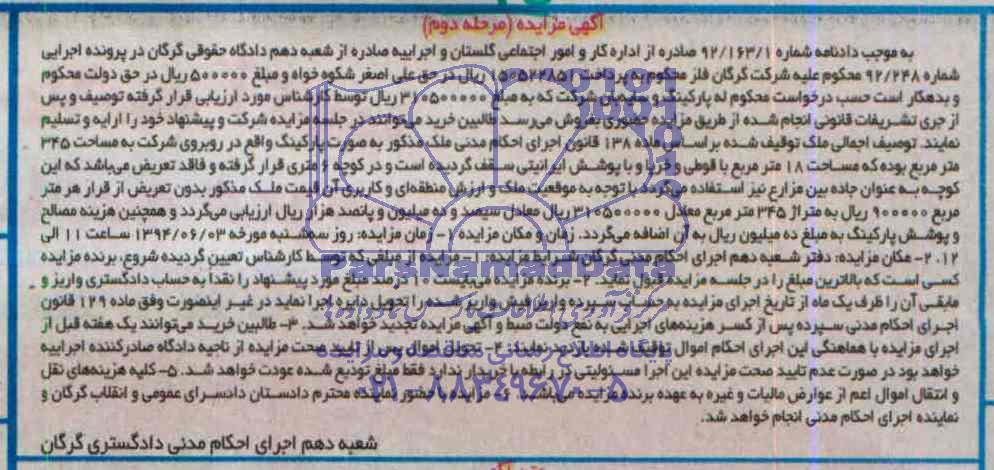 آگهی مزایده (مرحله دوم)
به موجب دادنامه شماره ۹۲/۱۶۳/۱ صادره از اداره کار و امور اجتماعی گلستان و اجراییه صادره از شعبه دهم دادگاه حقوقی گرگان در پرونده اجرایی
شماره ۹۲/۲۴۸ محکوم علیه شرکت گرگان فلز محکوم به پرداخت ریال در حق علی اصغر شکوه خواه و مبلغ ۵۰۰۰۰۰ ریال در حق دولت محکوم
و بدهکار است حسب درخواست محکوم له پارکینگ و سایه‌بان شرکت که به مبلغ ۳۱۰۵۰۰۰۰۰ ریال توسط کارشناس مورد ارزیابی قرار گرفته توصیف و پس
از جری تشریفات قانونی انجام شده از طریق مزایده حضوری بفروش می‌رسد طالبین خرید می‌توانند در جلسه مزایده شرکت و پیشنهاد خود را ارایه و تسلیم
نمایند. توصیف اجمالی ملک توقیف شده بر اساس ماده ۱۳۸ قانون اجرای احکام مدنی ملک مذکور به صورت پارکینگ واقع در روبروی شرکت به مساحت ۳۴۵
متر مربع بوده که مساحت ۱۸ متر مربع با قوطی و خرپا و با پوشش ایرانیتی سقف گردیده است و در کوچه ۶ متری قرار گرفته و فاقد تعریض می‌باشد که این
کوچه به عنوان جاده بین مزارع نیز استفاده می‌گردد با توجه به موقعیت ملک و ارزش منطقه‌ای و کاربری آن قیمت ملک مذکور بدون تعریض از قرار هر متر
مربع ۹۰۰۰۰۰ ریال به متراژ ۳۴۵ متر مربع معادل ۳۱۰۵۰۰۰۰۰ ریال معادل سیصد و ده میلیون و پانصد هزار ریال ارزیابی می‌گردد و همچنین هزینه مصالح
و پوشش پارکینگ به مبلغ ده میلیون ریال به آن اضافه می‌گردد. زمان و مکان مزایده: ۱- زمان مزایده: روز سه‌شنبه مورخه ۱۳۹۴/۰۶/۰۳ ساعت ۱۱ الی
۱۲. ۲- مکان مزایده: دفتر شعبه دهم اجرای احکام مدنی گرگان شرایط مزایده: ۱- مزایده از مبلغی که توسط کارشناس تعیین گردیده شروع، برنده مزایده
کسی است که بالاترین مبلغ را در جلسه مزایده قبول نماید. ۲- برنده مزایده می‌بایست ۱۰ درصد مبلغ مورد پیشنهاد را نقداً به حساب دادگستری واریز و
مابقی آن را ظرف یک ماه از تاریخ اجرای مزایده به حساب سپرده واریز فیش واریز شده را تحویل دایره اجرا نماید در غیر اینصورت وفق ماده ۱۲۹ قانون
اجرای احکام مدنی سپرده پس از کسر هزینه‌های اجرایی به نفع دولت ضبط و آگهی مزایده تجدید خواهد شد. ۳- طالبین خرید می‌توانند یک هفته قبل از
اجرای مزایده با هماهنگی این اجرای احکام اموال توقیف شده بازدید نمایند. ۴- تحویل اموال پس از تایید صحت مزایده از ناحیه دادگاه صادرکننده اجراییه
خواهد بود در صورت عدم تایید صحت مزایده این اجرا مسئولیتی در رابطه با خریدار ندارد فقط مبلغ تودیع شده عودت خواهد شد. ۵- کلیه هزینه‌های نقل
و انتقال اموال اعم از عوارض مالیات و غیره به عهده برنده مزایده می‌باشد. ۶- مزایده با حضور نماینده محترم دادستان دادسرای عمومی و انقلاب گرگان و
نماینده اجرای احکام مدنی انجام خواهد شد.
شعبه دهم اجرای احکام مدنی دادگستری گرگان
ParsNamadData
پایگاه اطلاع رسانی مناقصه و مزایده
۰۲۱-۸۸۳۴۹۶۷۰-۵